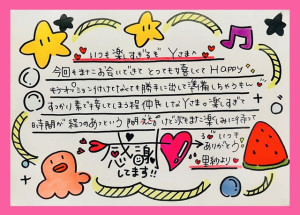 いつも楽しすぎるぞ Yさまへ
今回もまたお会いできて とっても嬉しくて HAPPY
モチオプション付けてなくても勝手に出して準備しちゃうもん
すっかり素で接してしまう程 仲良しだなYさま。楽しすぎて
時間が経つのあっという間だけど次もまた楽しみに待って
る いつも
ありがとう
感謝
してます!!
里紗より